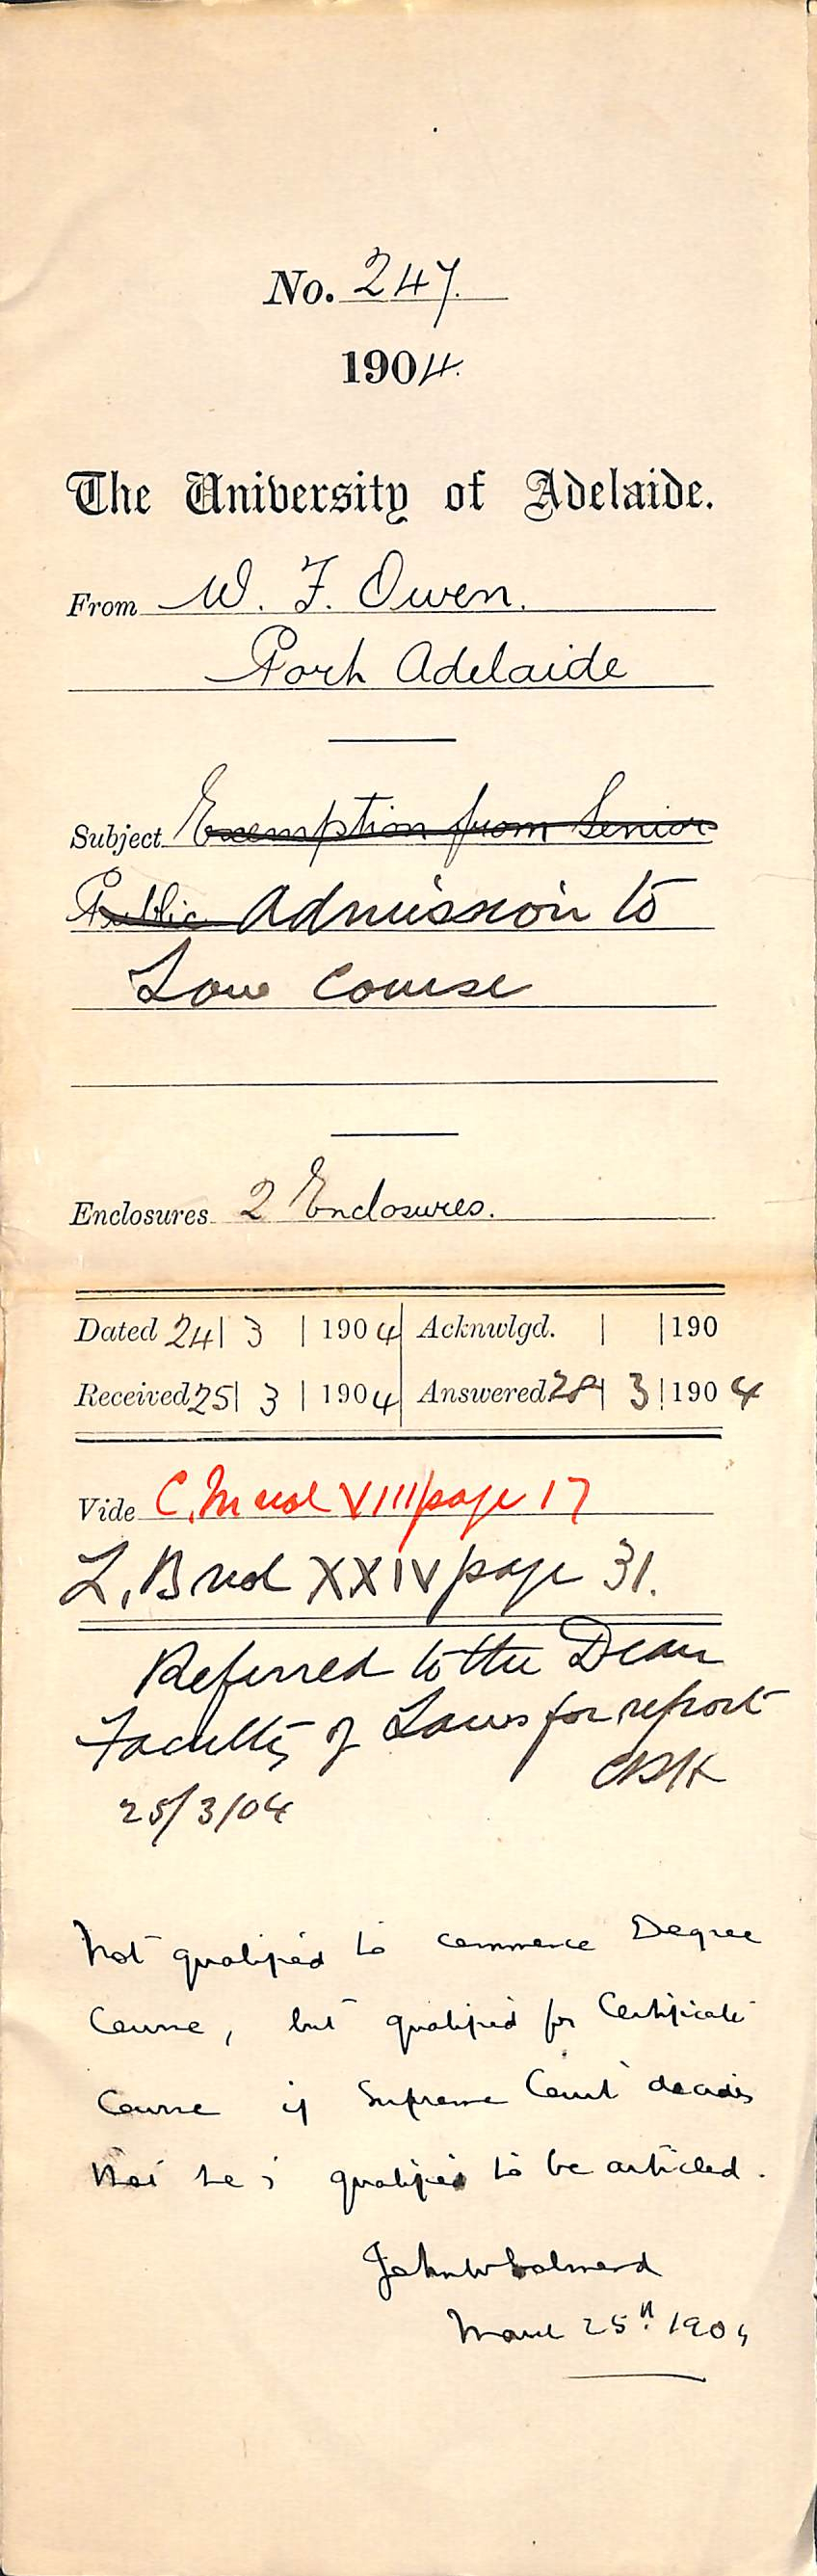 No. 247.
1904.
The University of Adelaide.
From W. F. Owen.
Port Adelaide
Subject Exemption from Senior
Public Admission to
Law Course
Enclosures 2 Enclosures.
Dated 24| 3 | 1904 Acknwlgd. | |190
Received 25| 3 | 1904 Answered 28| 3 |1904
Vide C. M vol VIII page 17
L. B vol XXIV page 31.
Referred to the Dean
Faculty of Laws for report
25/3/04
Not qualified to commence Degree
Course, but qualified for Certificate
Course if Supreme Court decides
that he is qualified to be articled.
John W Salmond
March 25th 1904